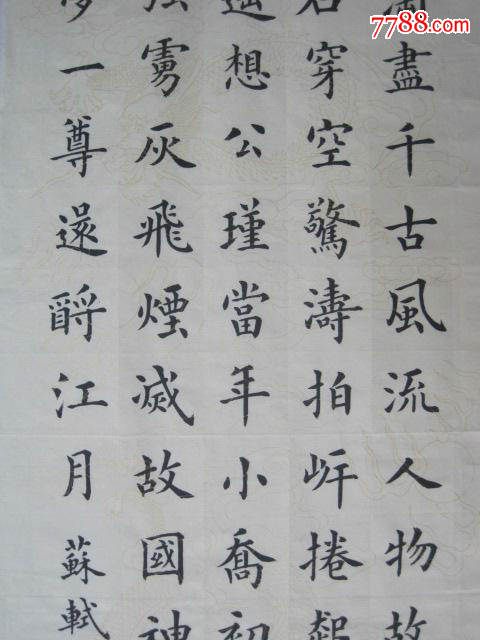 7788.com
中国收藏热线
盡千古風流人物故
石穿空驚濤拍岸捲
遥想公瑾當年小喬初
灰飛煙滅故國神
夢一尊還酹江月蘇軾